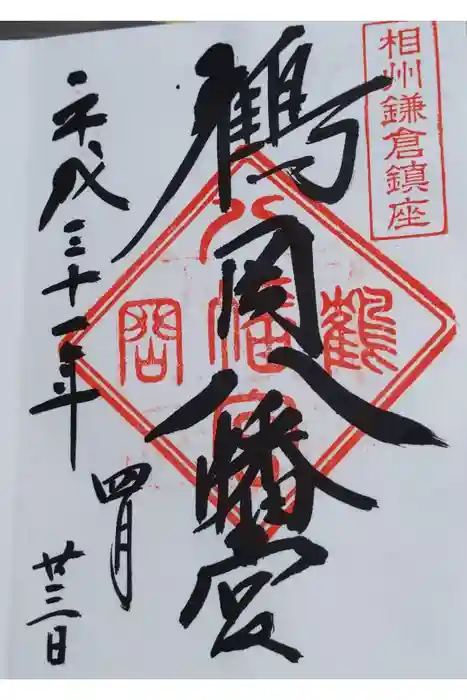 相州鎌倉鎮座
鶴岡八幡宮
鶴
八
幡
宮
岡
平成三十一年
四月
廿三日